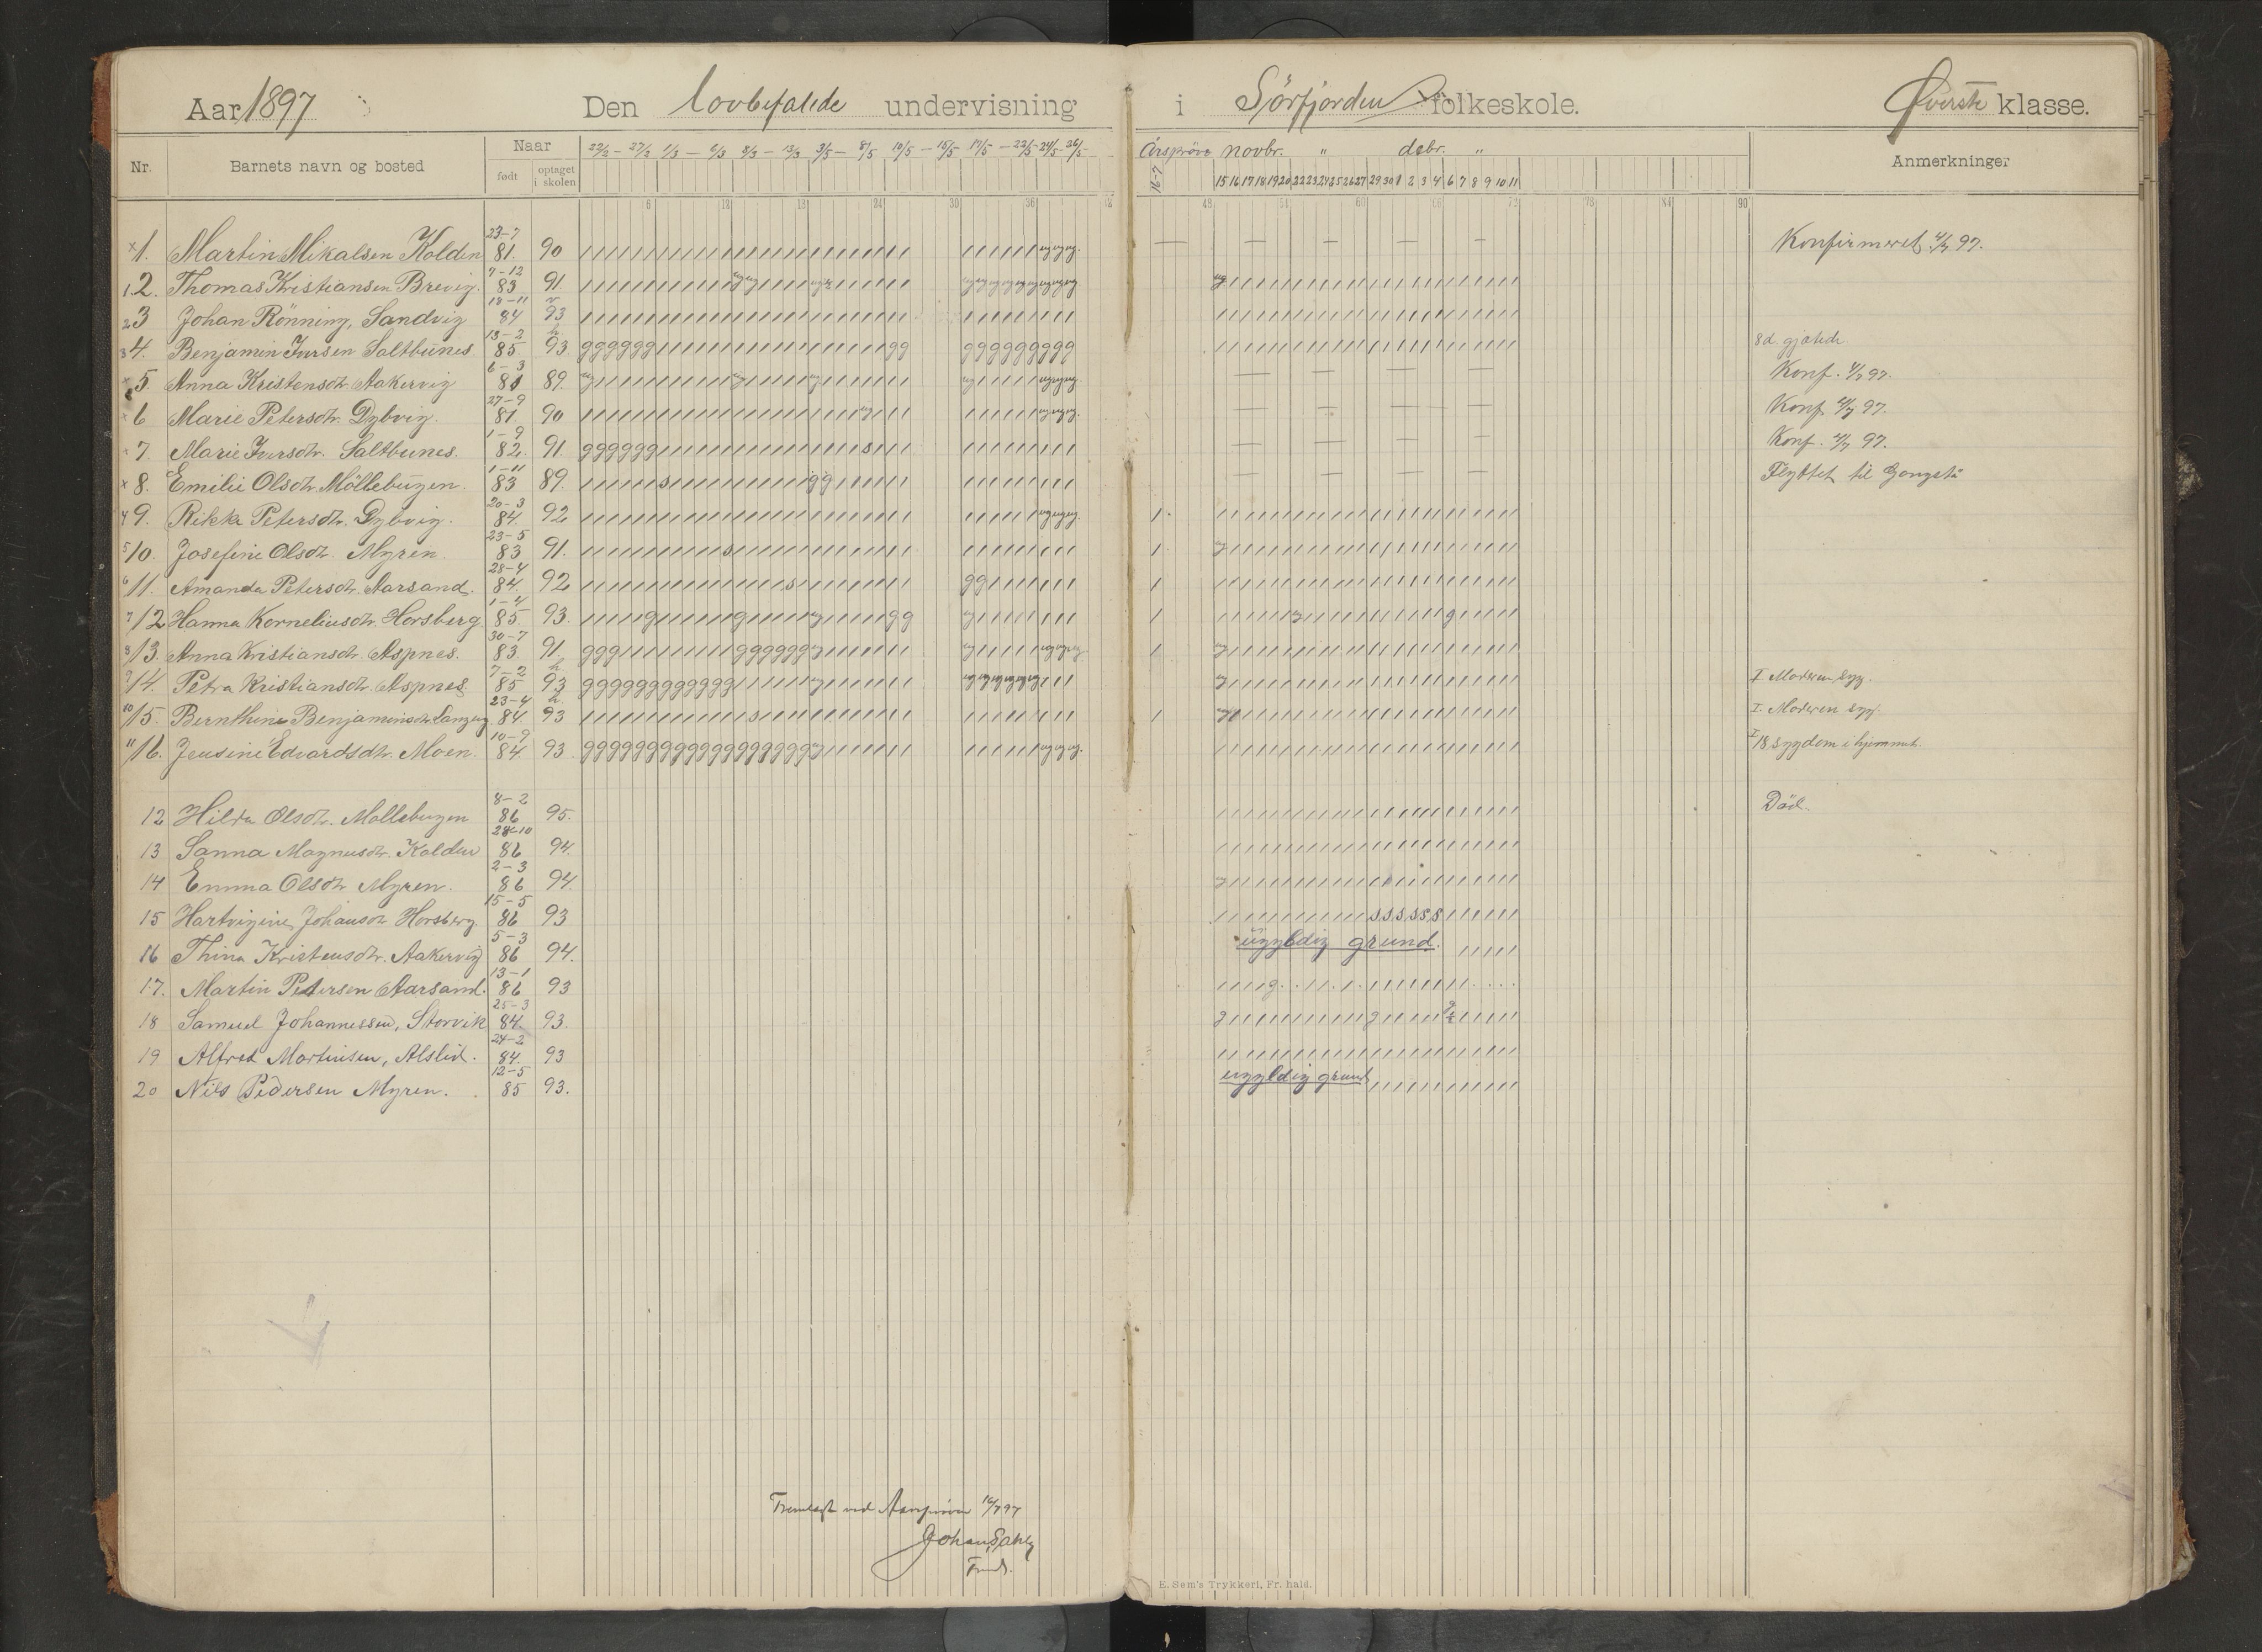 Aar 1897 Den lovbefalede undervisning i Sörfjorden folkeskole. Øverste klasse.
Nr. Barnets navn og bosted Naar født optaget i skolen Anmerkninger
22/2 – 27/2 1/3 – 6/3 8/3 – 13/3 3/5 – 8/5 10/5 – 15/5 17/5 – 22/5 24/5 26/5 Årsprøve novbr. " debr. "
16-7 15 16 17 18 19 20 22 23 24 25 26 27 29 30 1 2 3 4 6 7 8 9 10 11
6 12 18 24 30 36 48 54 60 66 72 78 84 90
x 1. Martin Mikalsen Kolden 23-7 81. 90 Konfirmeret 4/7 97.
1. 2. Thomas Kristiansen Brevig. 7-12 83 91.
2 3 Johan Rönning, Sandvig 18-11 84 v 93
3 4. Benjamin Iversen Saltbunes 13-2 85. h 93 gggggg gg ggggggggg 8 d. gjætede.
5. Anna Kristensdtr. Aakervig 6-3 81 89. Konf. 4/7 97.
x 6 Marie Petersdtr. Dybvig. 27-9 81 90 Konf. 4/7 97.
7. Marie Iversdtr. Saltbunes. 1-9 82. 91. gggggg s Konf. 4/7 97.
x 8. Emilie Olsdtr. Möllebugen. 1-11 83 89. s gg Flyttet til
4 9. Rikka Petersdtr. Dybvig. 20-3 84. 92
5 10. Josefine Olsdtr. Myren. 23-5 83 91. s
6 11. Amanda Petersdtr. Aarsand. 28-4 84. 92 s gg
7 12 Hanna Korneliusdtr. Horsberg 1-4 85. 93. g g gg g
8 13. Anna Kristiansdtr. Aspnes. 30-7 83. 91. ggg gggggg
9 14. Petra Kristiansdtr. Aspnes. 7-2 85 h 93 gggggggggggg I Moderen syg.
10 15. Bernthine Benjaminsdtr. 23-4 84. h 93 s I. Moderen syg.
11 16. Jensine Edvardsdtr. Moen. 10-9 84. 93 gggggggggggggggggg I 18 sygdom i hjemmet.
12 Hilda Olsdtr. Mollebugen 8-2 86 95. Död.
13 Sanna Magnusdtr. Kolden 28-10 86 94.
14 Emma Olsdtr Myren. 2-3 86 94.
15 Hartvigine Johansdtr Horsberg. 15-5 86 93 ssssss
16 Thina Kristensdtr. Aakervig 5-3 86 94. ugyldig grund.
17. Martin Petersen Aarsand. 13-1 86 93 g
18 Samuel Johannessen, Storvik 25-3 84. 93.
19 Alfred Martinsen, Alslid. 24-2 84. 93
20 Nils Pedersen Myren. 12-5 85 93. ugyldig grund
Fremlagt ved Aarsprøven 16/7 97
Johan
E. Sem's Trykkeri, Fr.hald.